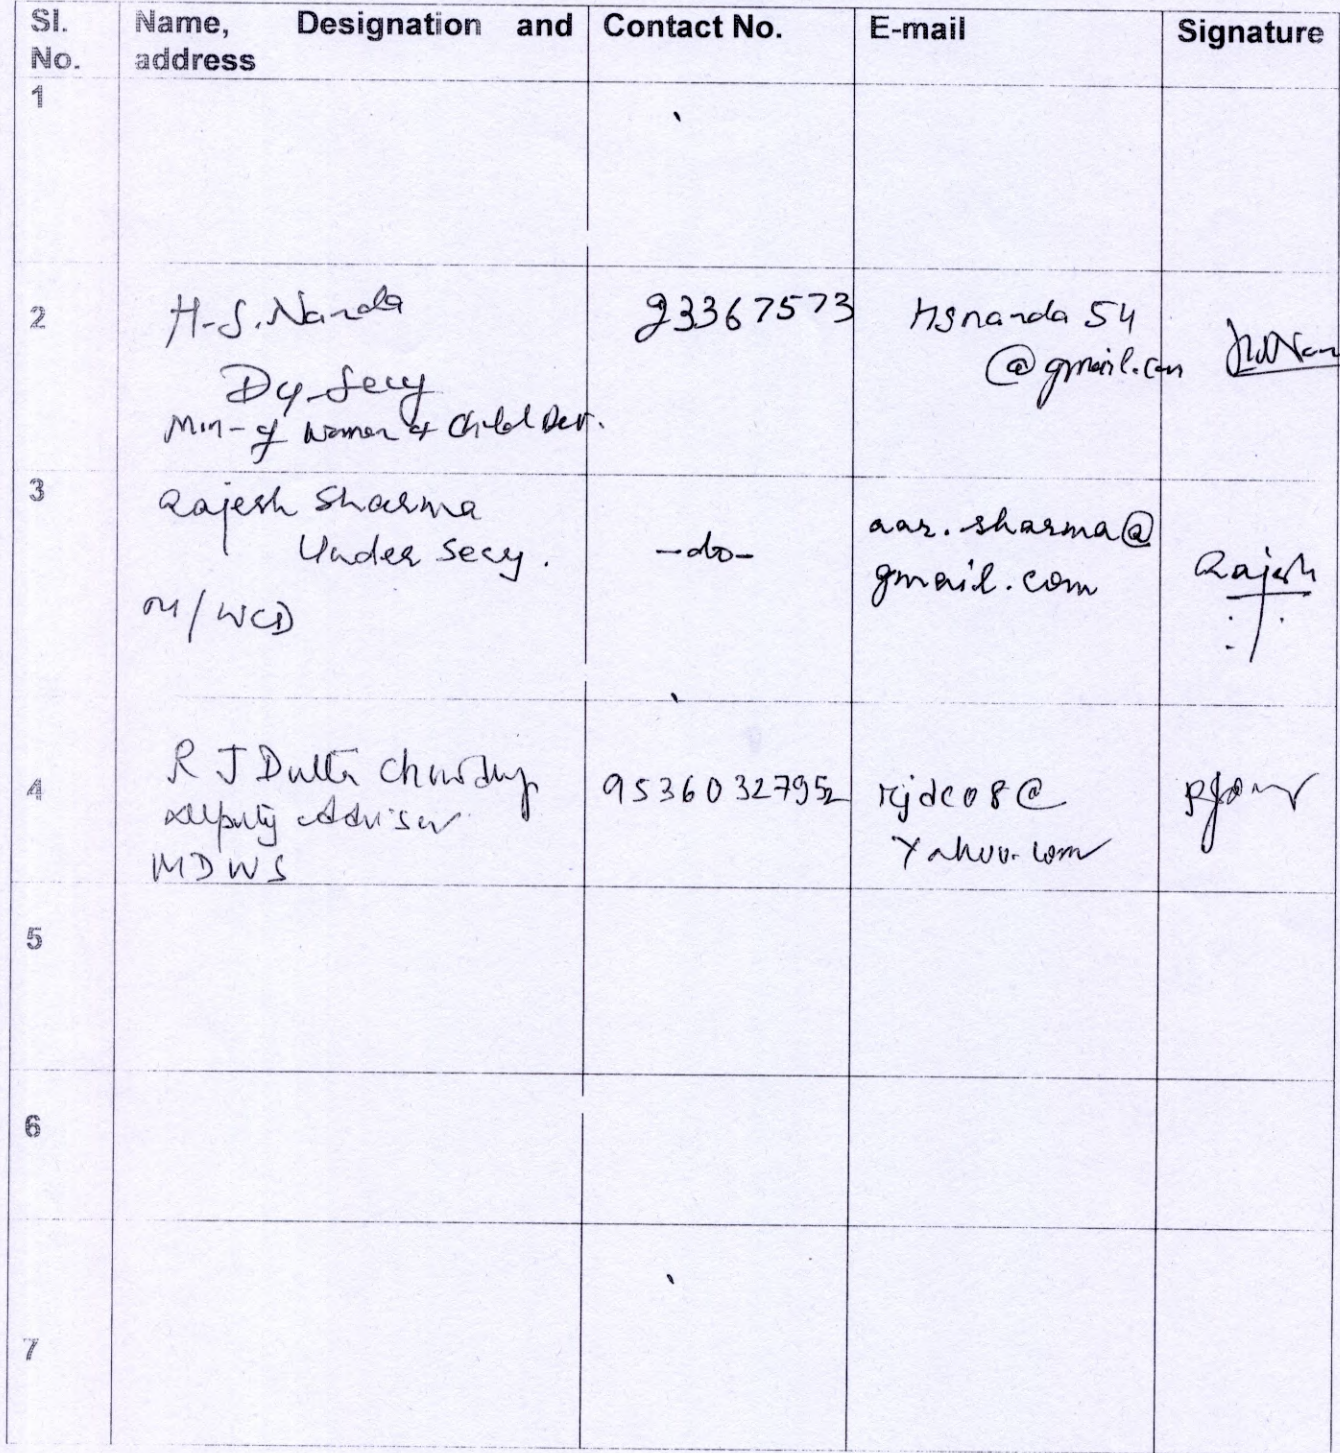 Sl. No. Name, Designation and address Contact No. E-mail Signature
1
2
H.S. Nanda
Dy. Secy
Min- of Women & Child Dev.
23367573
hsnanda54
@gmail.com
3
Rajesh Sharma
Under Secy.
M/WCD
-do-
aar.sharma@
gmail.com
Rajesh
4
R J Dutta Chowdhury
Deputy Adviser
MDWS
rjdc08@
yahoo.com
5
6
7